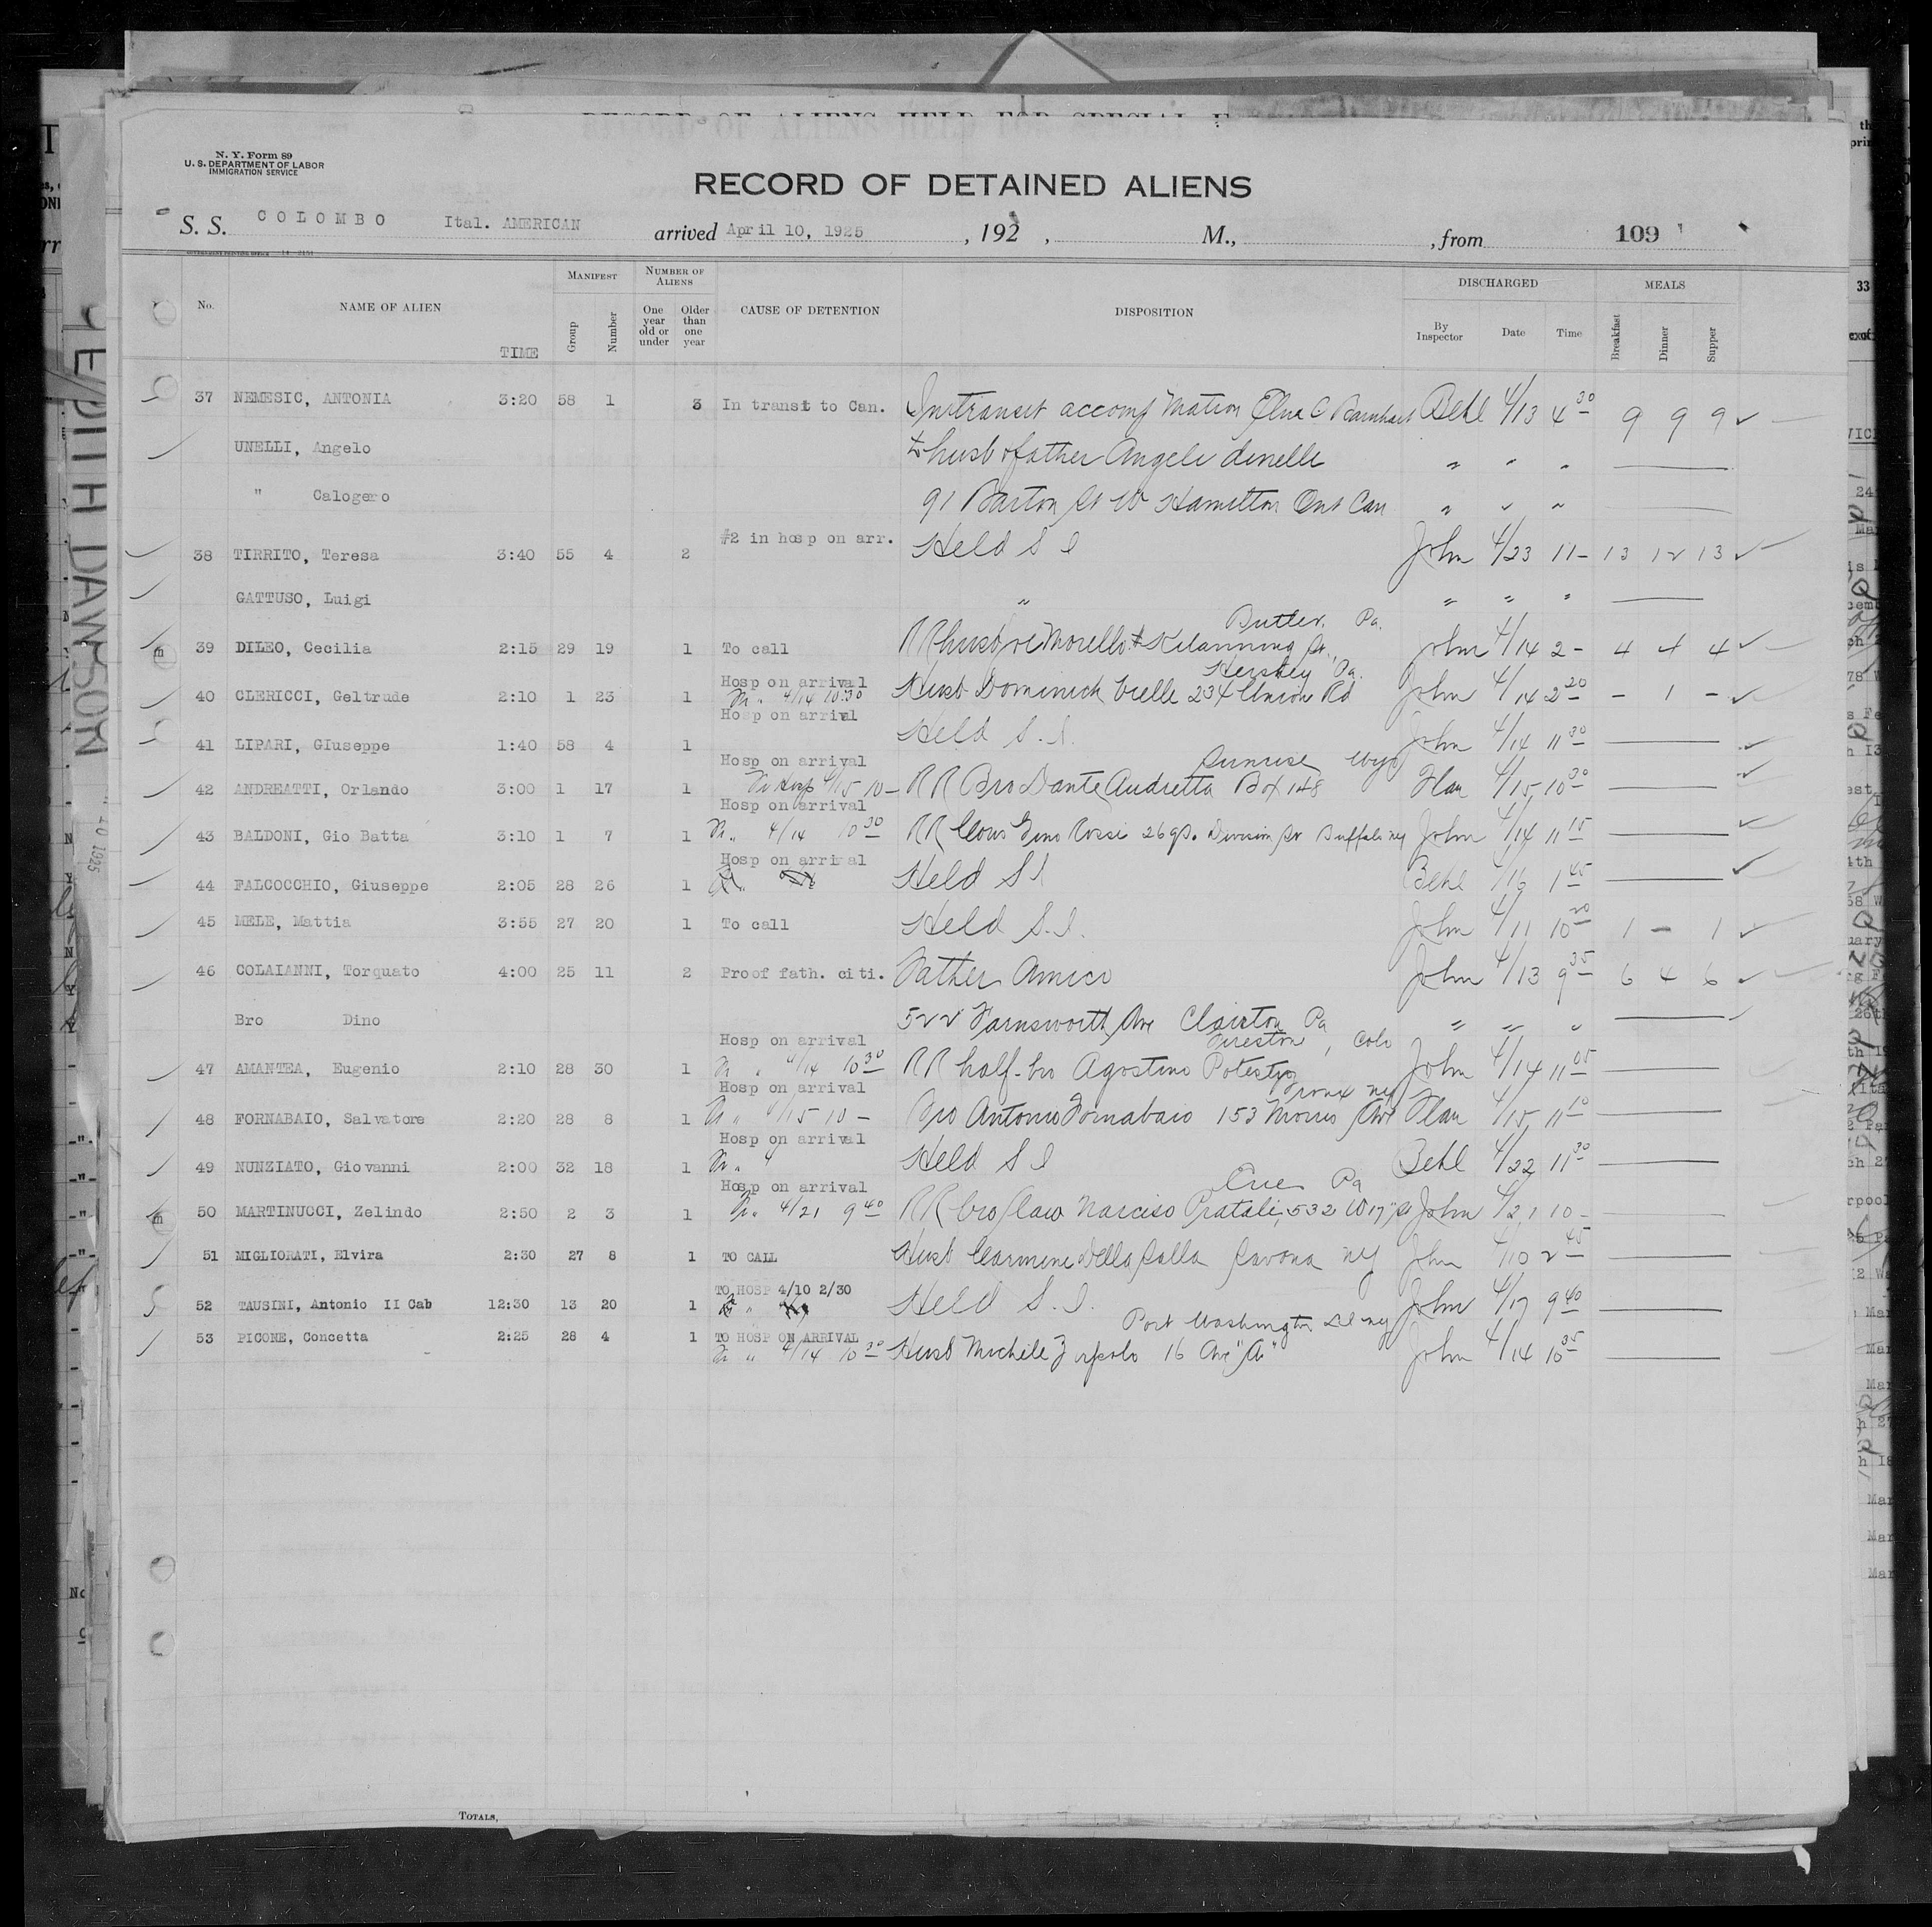 N. Y. Form 89
U. S. DEPARTMENT OF LABOR
IMMIGRATION SERVICE
RECORD OF DETAINED ALIENS
S. S. COLOMBO Ital. AMERICAN arrived April 10, 1925 , 192 , M., , from 109
No. NAME OF ALIEN TIME MANIFEST Group Number NUMBER OF ALIENS One year old or under Older than one year CAUSE OF DETENTION DISPOSITION DISCHARGED By Inspector Date Time MEALS Breakfast Dinner Supper
37 NEMESIC, ANTONIA 3:20 58 1 3 In transit to Can. Intransit accomp Matron C Barnhart Behl 4/13 4 30 9 9 9
UNELLI, Angelo to husb & father Angelo " " "
" Calogero 91 Barton St W Hamilton Ont Can " " "
38 TIRRITO, Teresa 3:40 55 4 2 #2 in hosp on arr. Held S I John 4/23 11- 13 12 13
GATTUSO, Luigi " " " "
Butler, Pa.
39 DILEO, Cecilia 2:15 29 19 1 To call RR husb Morello St. John 4/14 2- 4 4 4
Hosp on arrival Hershey Pa.
40 CLERICCI, Geltrude 2:10 1 23 1 4/14 10:30 Husb Dominick 234 Union Rd John 4/14 2 20 - 1 -
Hosp on arrival
41 LIPARI, GIuseppe 1:40 58 4 1 Held S. I. John 4/14 11 30
Hosp on arrival Sunrise Wyo
42 ANDREATTI, Orlando 3:00 1 17 1 Hosp 4/15 10- RR Bro Dante Andretta Box 148 Flan 4/15 10 30
Hosp on arrival
43 BALDONI, Gio Batta 3:10 1 7 1 " 4/14 10 30 RR Cous Gino Rossi Division St Buffalo NY John 4/14 11 15
Hosp on arrival
44 FALCOCCHIO, Giuseppe 2:05 28 26 1 Held S I Behl 4/16 1 45
45 MELE, Mattia 3:55 27 20 1 To call Held S. I. John 4/11 10 20 1 - 1
46 COLAIANNI, Torquato 4:00 25 11 2 Proof fath. citi. Father Americo John 4/13 9 35 6 4 6
Bro Dino 522 Farnsworth Ave Clairton Pa " " "
Hosp on arrival , Colo
47 AMANTEA, Eugenio 2:10 28 30 1 " 4/14 10 30 RR half-bro Agostino John 4/14 11 05
Hosp on arrival Bronx NY
48 FORNABAIO, Salvatore 2:20 28 8 1 " 4/15 10- Bro Antonio Fornabaio 153 Morris Ave Flan 4/15 11 10
Hosp on arrival
49 NUNZIATO, Giovanni 2:00 32 18 1 " Held S I Behl 4/22 11 30
Hosp on arrival Erie Pa
50 MARTINUCCI, Zelindo 2:50 2 3 1 " 4/21 9 40 RR bro/law Narciso Pratali, 532 W 17" St John 4/21 10-
51 MIGLIORATI, Elvira 2:30 27 8 1 TO CALL Husb Carmine Della Salla Savona NY John 4/10 2 45
TO HOSP 4/10 2/30
52 TAUSINI, Antonio II Cab 12:30 13 20 1 Held S. I. John 4/17 9 40
Port Washington
53 PICONE, Concetta 2:25 28 4 1 TO HOSP ON ARRIVAL
" 4/14 10 30 Husb Michele 16 Ave "A" John 4/14 10 35
TOTALS,
EDITH DAWSON